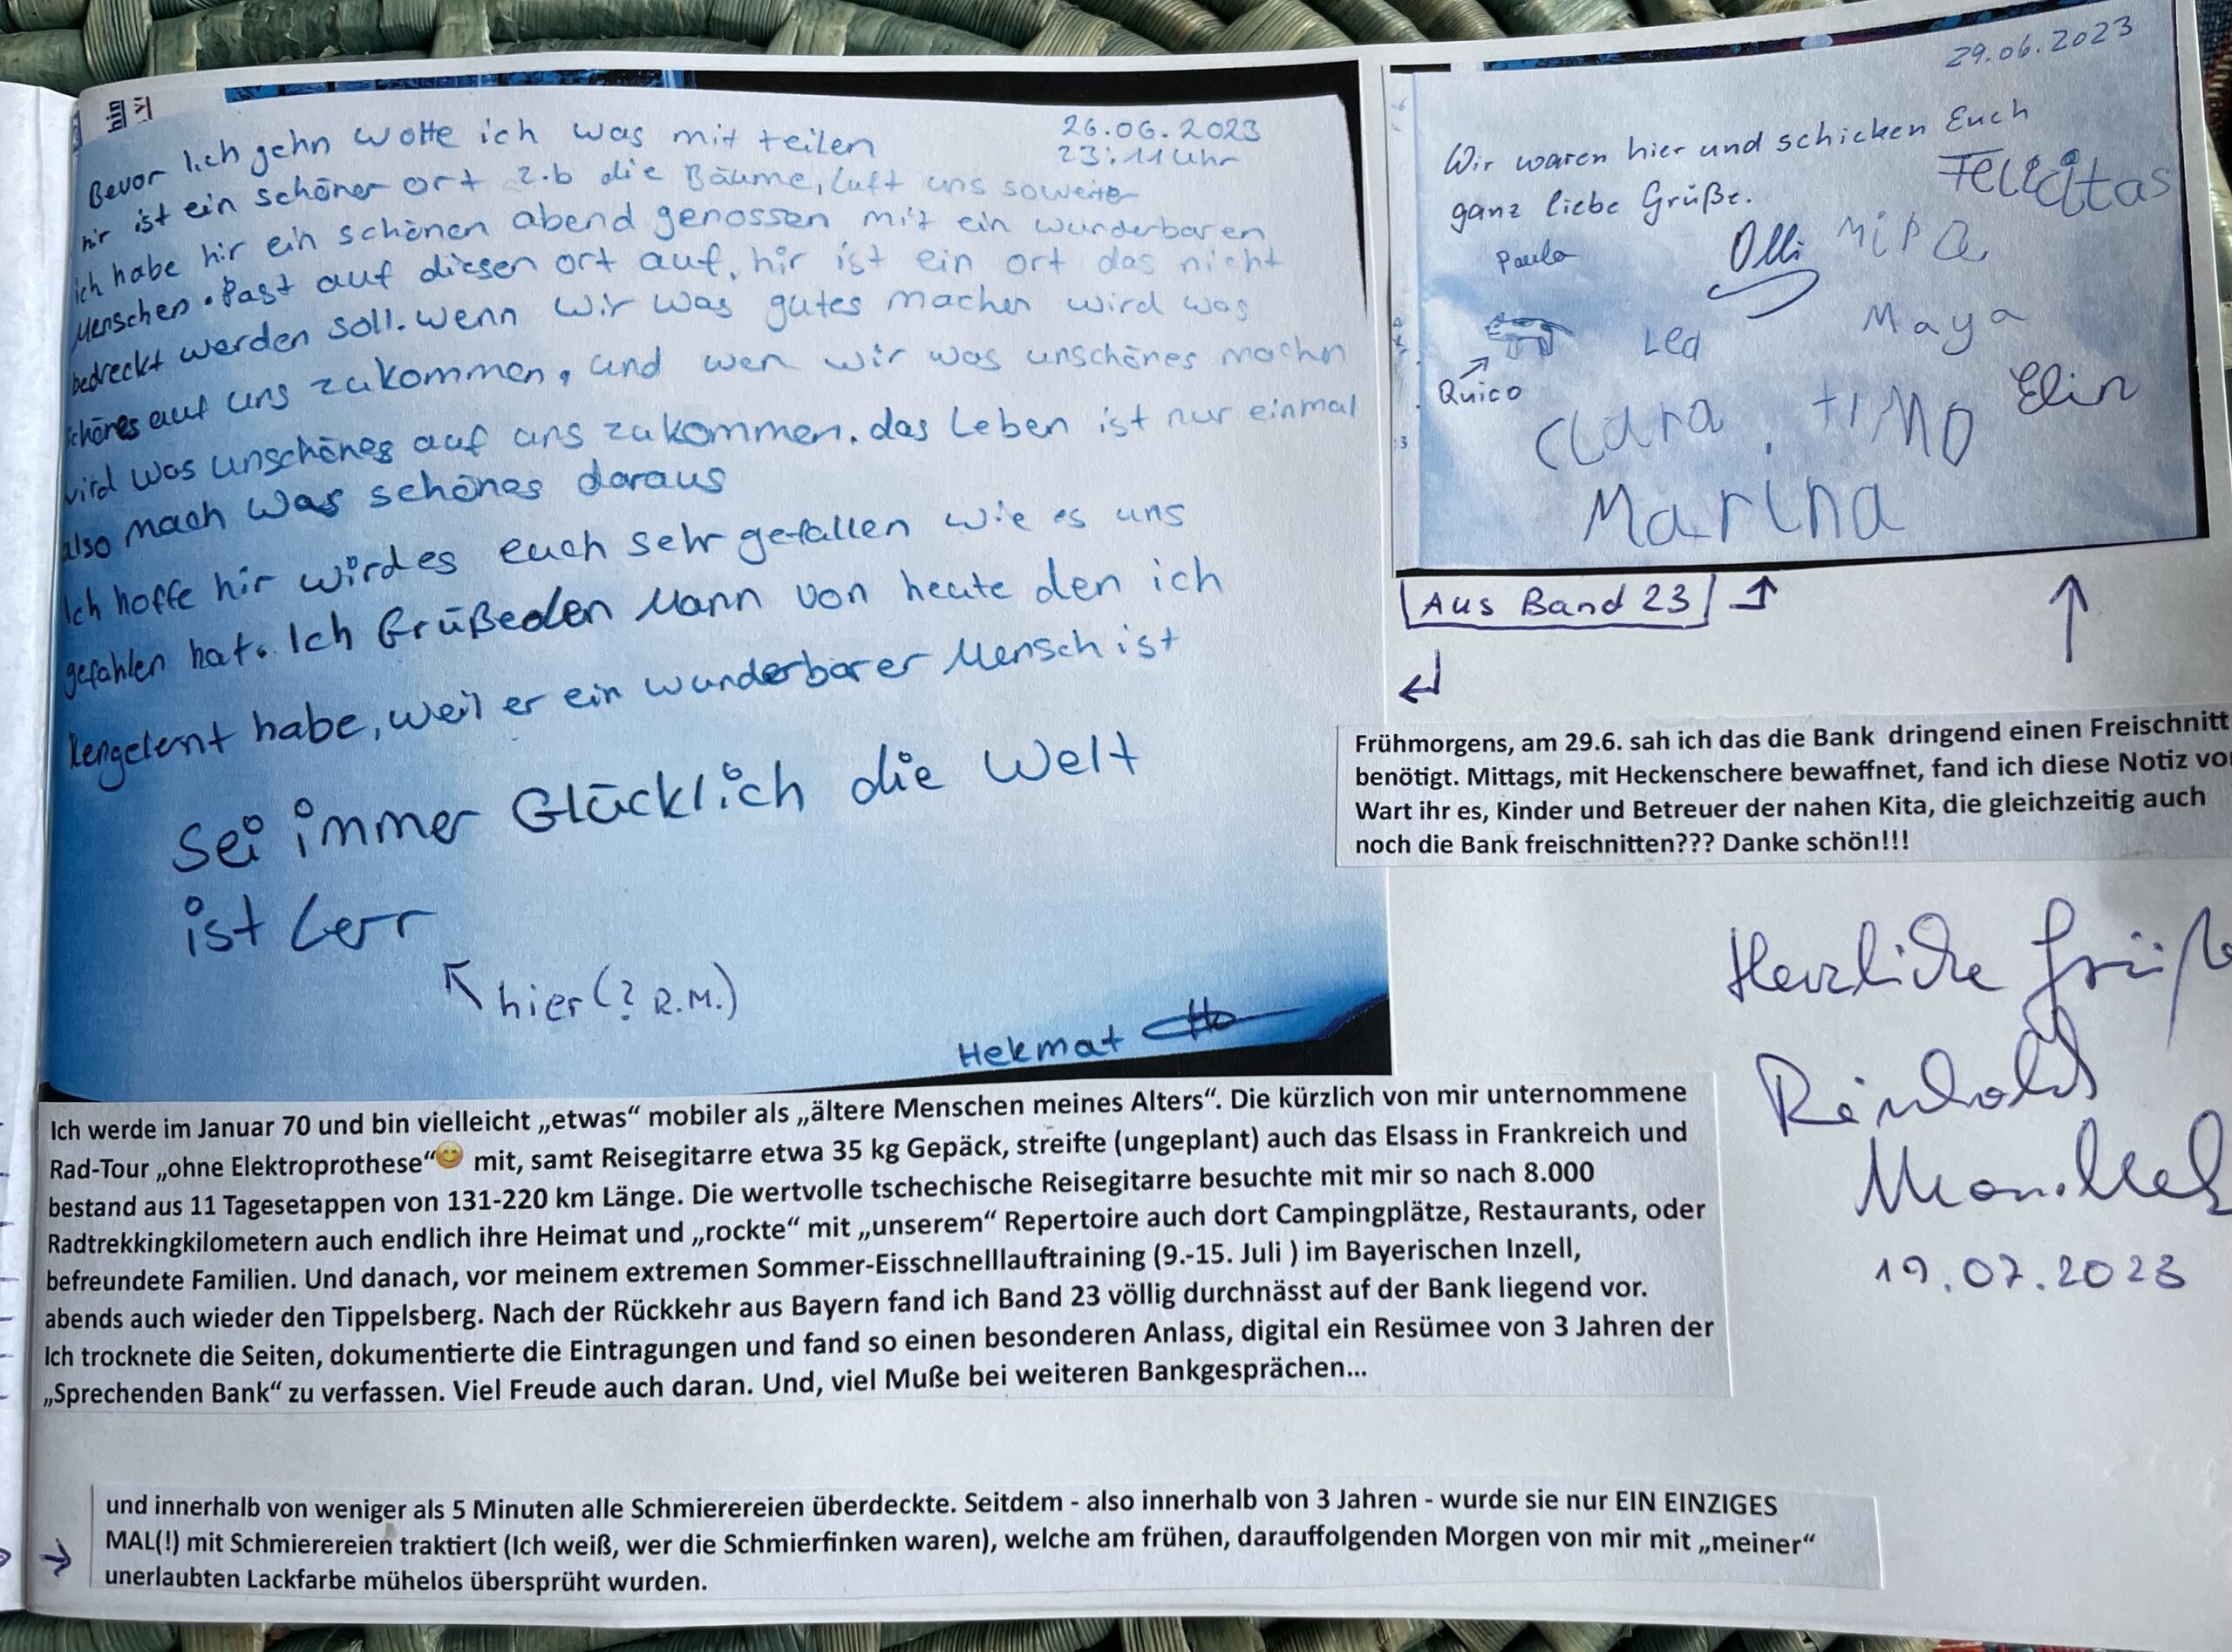 Bevor Iich gehn wolte ich was mit teilen
26.06.2023
23:11 Uhr
hir ist ein schöner ort z.b die Bäume, luft uns soweiter
ich habe hir ein schönen abend genossen mit ein wunderbaren
Menschen. Past auf diesen ort auf, hir ist ein ort das nicht
bedreckt werden soll. wenn wir was gutes machen wird was
schönes auf uns zukommen, und wen wir was unschönes machn
wird was unschönes auf uns zukommen. das Leben ist nur einmal
also mach was schönes daraus
Ich hoffe hir wird es euch sehr gefallen wie es uns
gefahlen hat. Ich Grüße den Mann von heute den ich
kengelernt habe, weil er ein wunderbarer Mensch ist
Sei immer Glücklich die Welt
ist Lerr
hier (? R.M.)
Hekmat
29.06.2023
Wir waren hier und schicken Euch
ganz liebe Grüße.
Felicitas
Paula
Olli
Mira
Lea
Maya
Quico
Clara
TIMO
Elin
Marina
Aus Band 23
Frühmorgens, am 29.6. sah ich das die Bank dringend einen Freischnitt
benötigt. Mittags, mit Heckenschere bewaffnet, fand ich diese Notiz vo
Wart ihr es, Kinder und Betreuer der nahen Kita, die gleichzeitig auch
noch die Bank freischnitten??? Danke schön!!!
Herzliche Grüße
Reinhold
19.07.2023
Ich werde im Januar 70 und bin vielleicht „etwas“ mobiler als „ältere Menschen meines Alters“. Die kürzlich von mir unternommene
Rad-Tour „ohne Elektroprothese“😊 mit, samt Reisegitarre etwa 35 kg Gepäck, streifte (ungeplant) auch das Elsass in Frankreich und
bestand aus 11 Tagesetappen von 131-220 km Länge. Die wertvolle tschechische Reisegitarre besuchte mit mir so nach 8.000
Radtrekkingkilometern auch endlich ihre Heimat und „rockte“ mit „unserem“ Repertoire auch dort Campingplätze, Restaurants, oder
befreundete Familien. Und danach, vor meinem extremen Sommer-Eisschnelllauftraining (9.-15. Juli ) im Bayerischen Inzell,
abends auch wieder den Tippelsberg. Nach der Rückkehr aus Bayern fand ich Band 23 völlig durchnässt auf der Bank liegend vor.
Ich trocknete die Seiten, dokumentierte die Eintragungen und fand so einen besonderen Anlass, digital ein Resümee von 3 Jahren der
„Sprechenden Bank“ zu verfassen. Viel Freude auch daran. Und, viel Muße bei weiteren Bankgesprächen...
und innerhalb von weniger als 5 Minuten alle Schmierereien überdeckte. Seitdem - also innerhalb von 3 Jahren - wurde sie nur EIN EINZIGES
MAL(!) mit Schmierereien traktiert (Ich weiß, wer die Schmierfinken waren), welche am frühen, darauffolgenden Morgen von mir mit „meiner“
unerlaubten Lackfarbe mühelos übersprüht wurden.